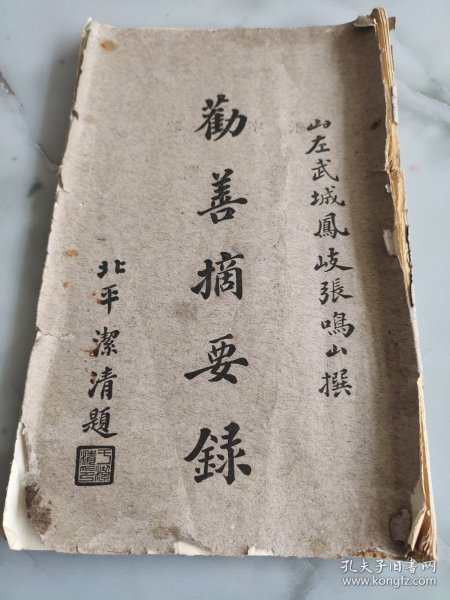 山左武城鳳岐張鳴山撰
勸善摘要録
北平潔清題
孔夫子旧书网
www.kongfz.com